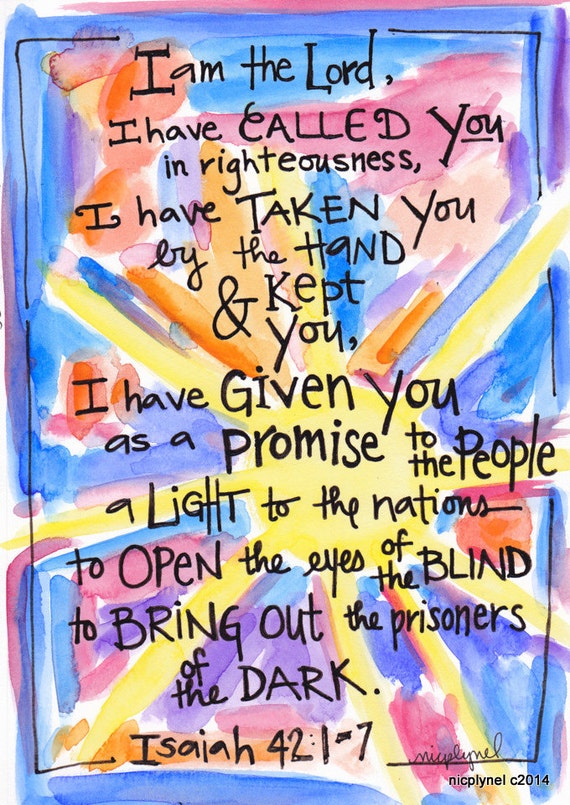 I am the Lord,
I have CALLED You
in righteousness,
I have TAKEN You
by the HAND
& Kept
You,
I have Given You
as a Promise to the People
a LIGHT to the nations—
to OPEN the eyes of the BLIND
to BRING OUT the prisoners
of the DARK.
Isaiah 42:1-7
nicplynel
nicplynel c2014